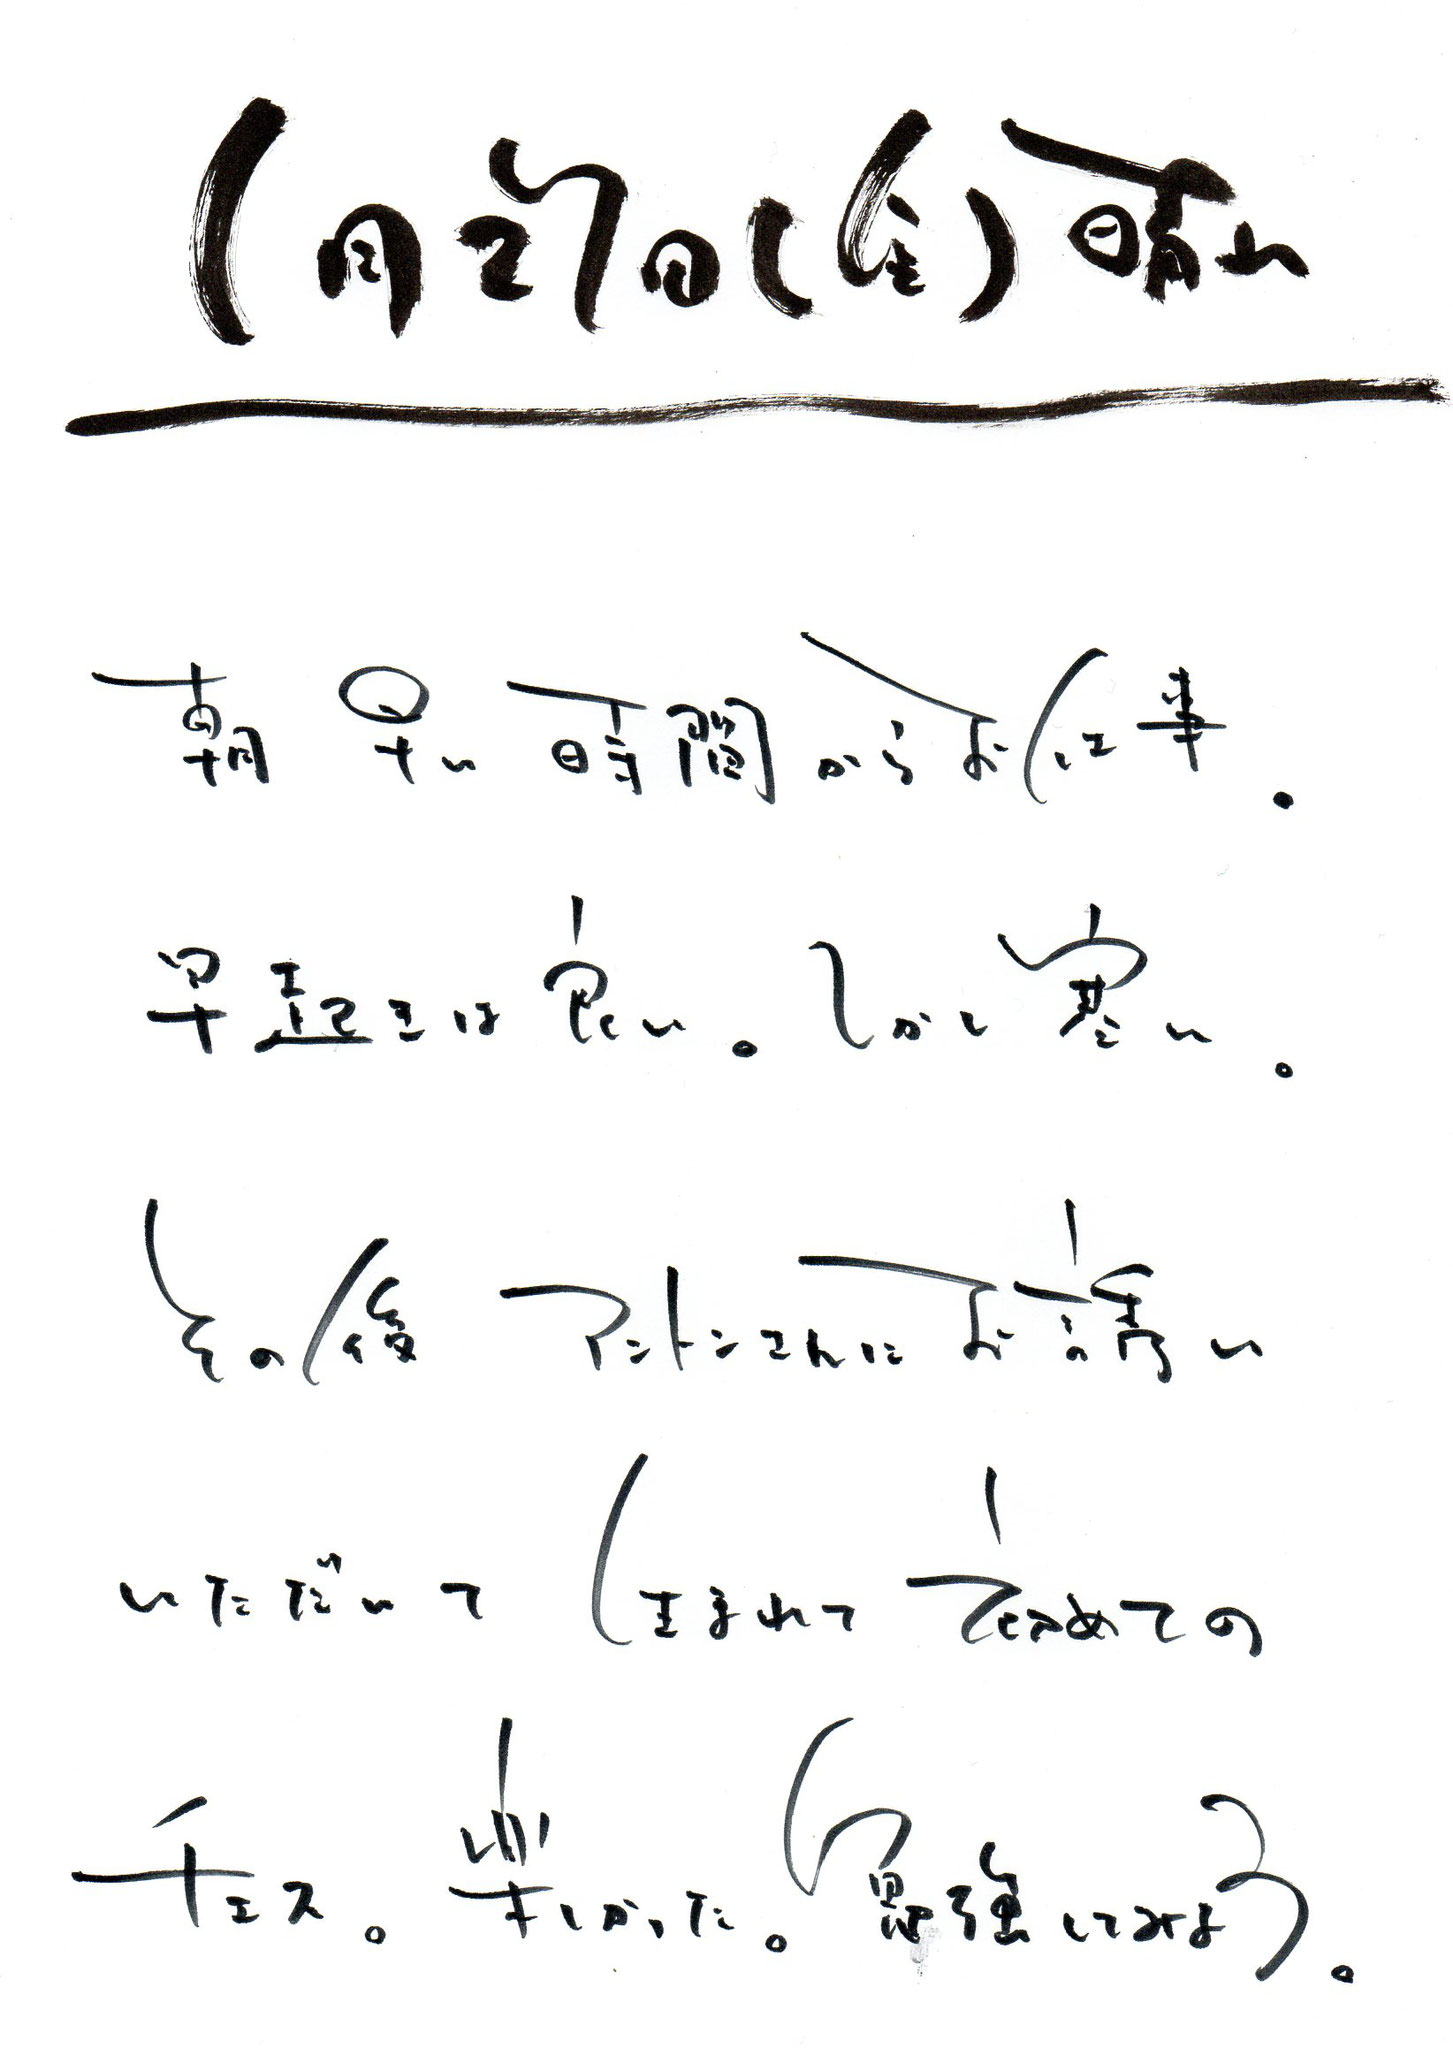 1月27日(金)晴れ
朝早い時間からお仕事。
早起きは良い。しかし寒い。
その後アントンさんにお誘い
いただいて生まれて初めての
チェス。楽しかった。勉強してみよう。